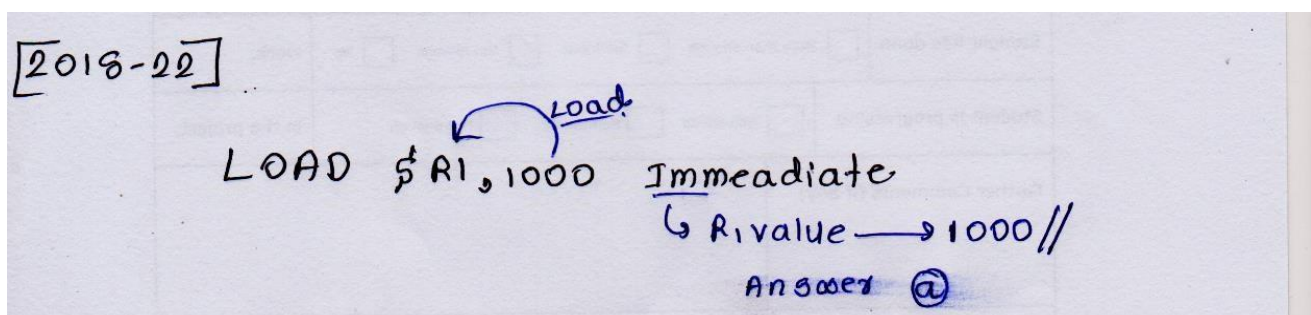 [2018-22]
Load
LOAD $R1, 1000 Immeadiate
↳ R1 value → 1000//
Answer ⓐ